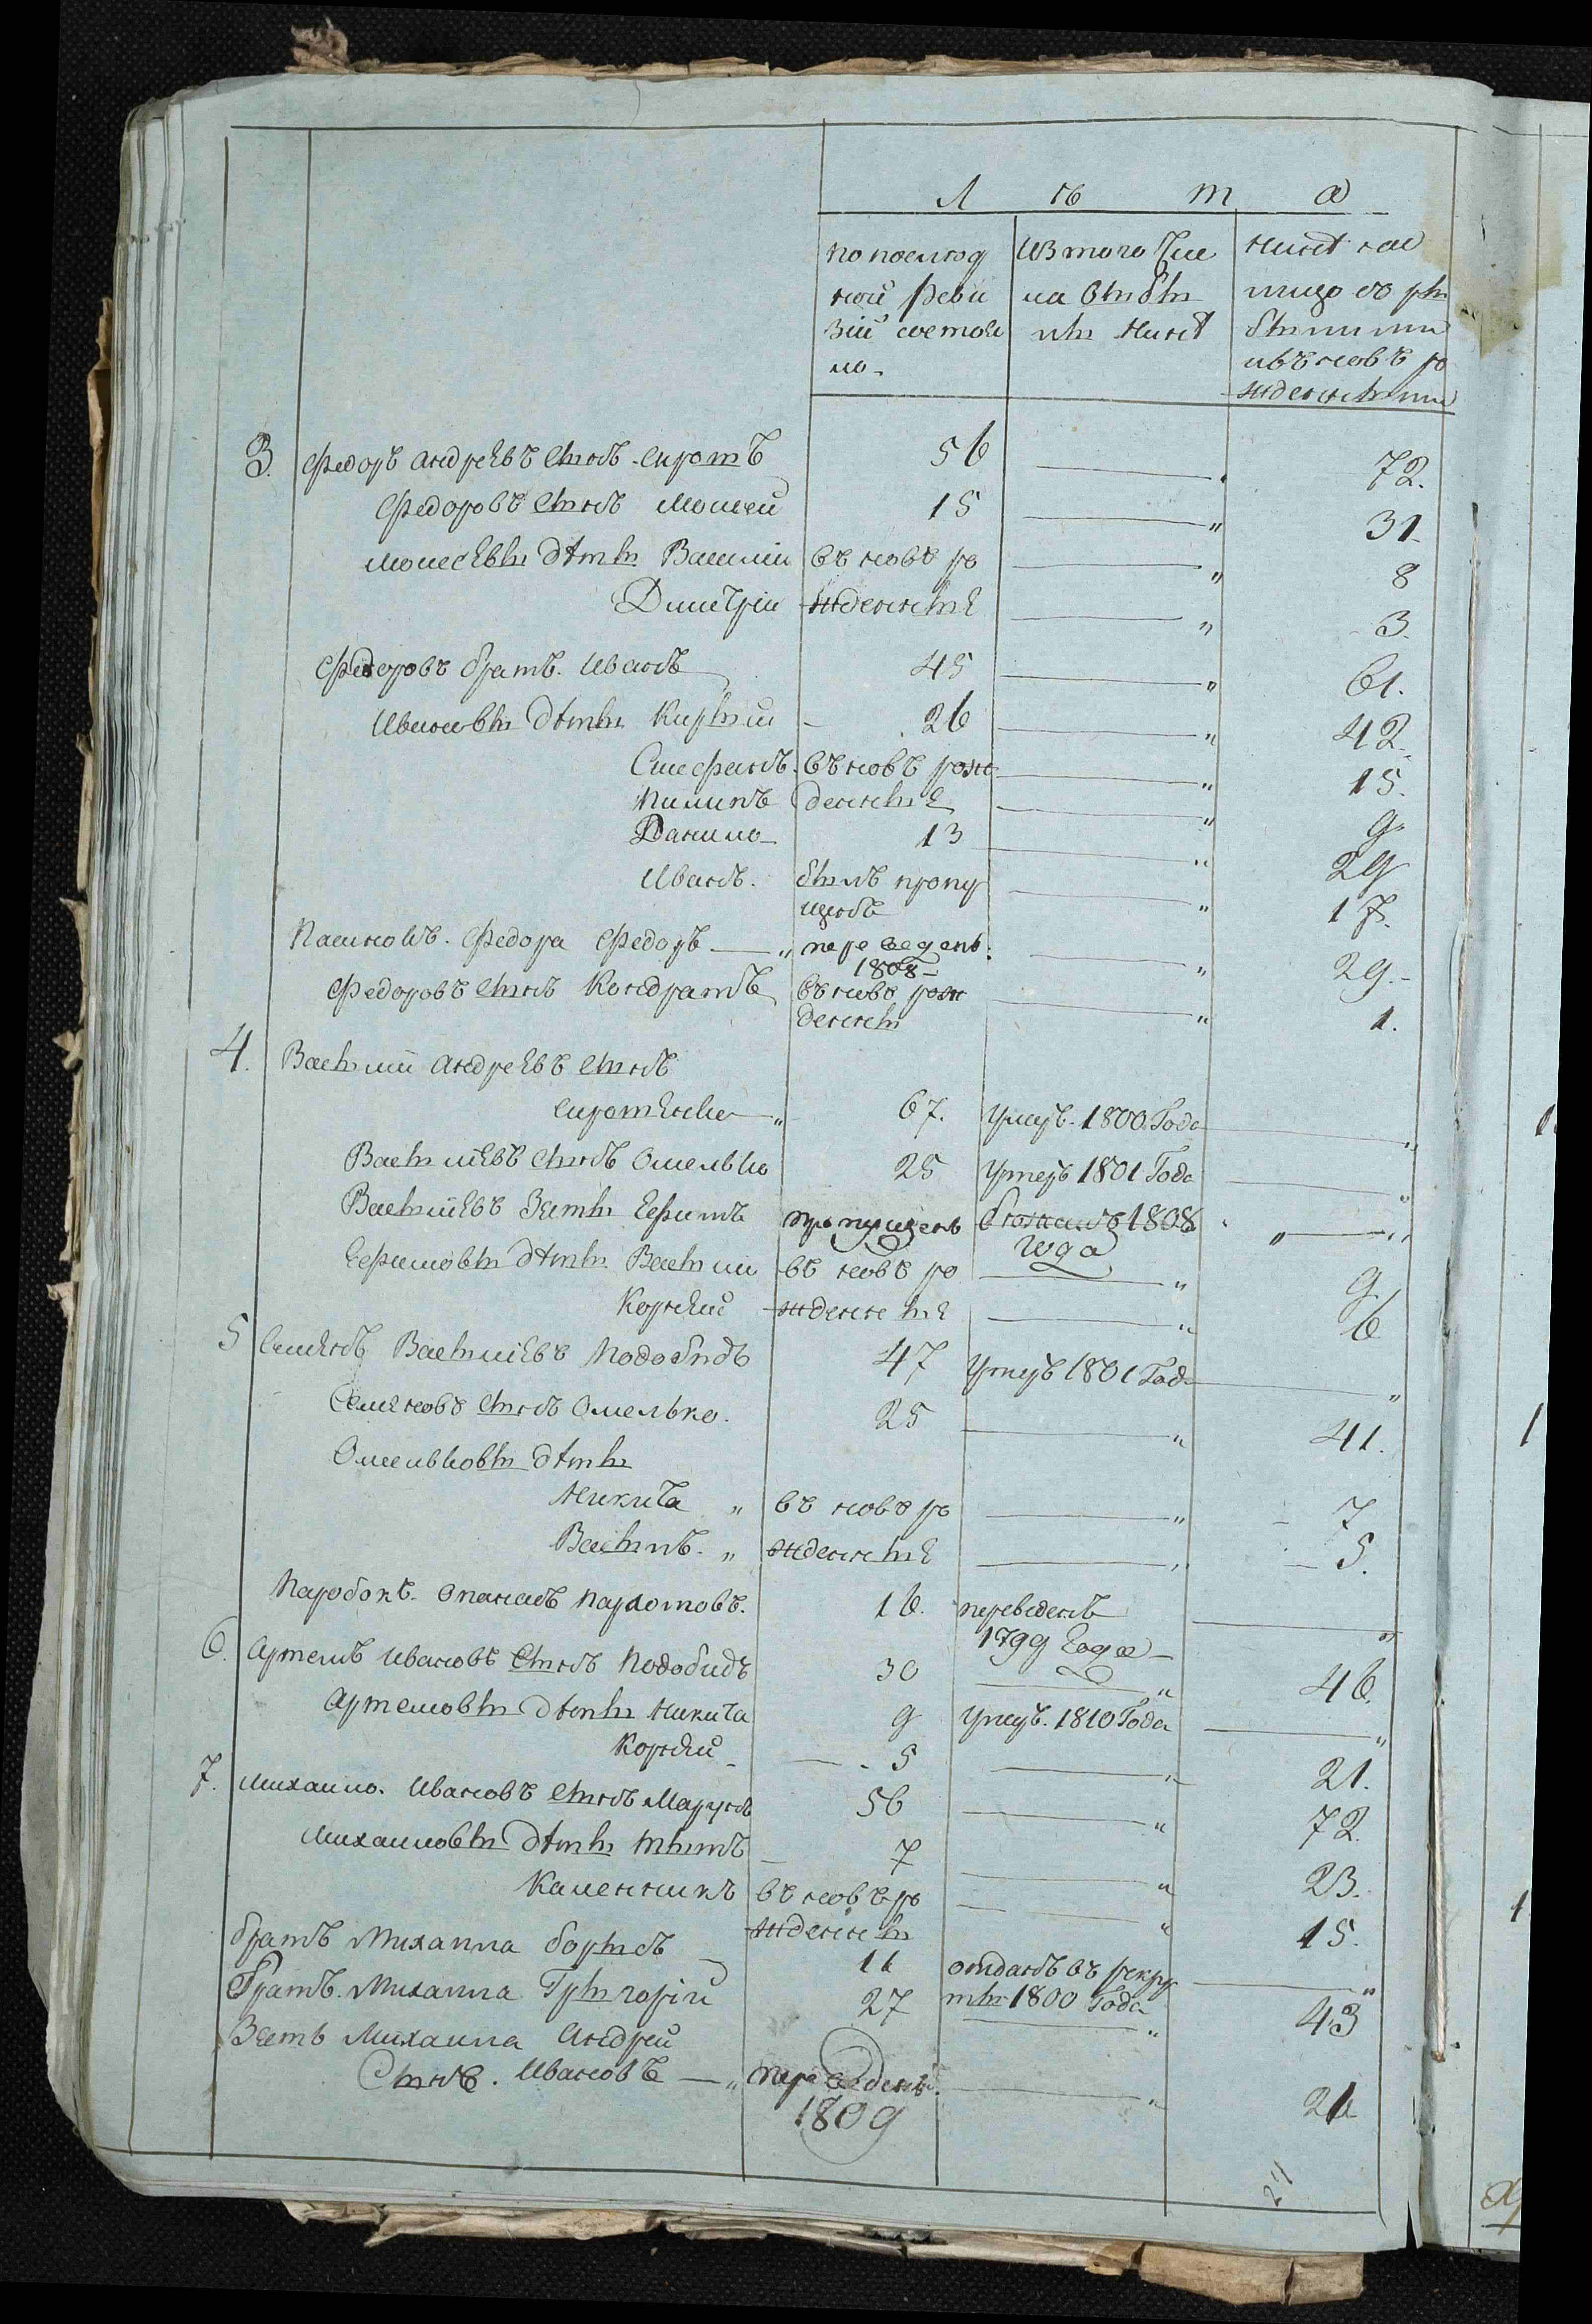 Л ѣ т а
по послѣд | Изъ того чис | Нынѣ на
ней реви | ла выбы | лицо съ ры
зіи состоя | ло нынѣ | бывшими
ло. | | и въ новѣ ро
жденными
3. Федоръ Андрѣевъ сынъ Сиротъ 56 — 72.
Федоровъ сынъ Мосѣй 15 — „ 31
Мосѣевы дѣти Василій въ новѣ ро — „ 8
Димитрій жденные — „ 3.
Федоровъ братъ. Иванъ 45 — „ 61.
Ивановы дѣти Кирыкъ 26 — „ 42.
Стефанъ. въ новѣ рож — „ 15.
Пилипъ денные — „ 9
Данило 13 — „ 29
Иванъ. былъ пропу — „ 17.
щенъ
Пасынокъ. Федора Федоръ — „ переведенъ. — „ 29.
1808
Федоровъ сынъ Кондратъ въ новѣ рож — „ 1.
денны
4. Василій Андрѣевъ сынъ
Сиротѣнко — „ 67. умеръ. 1800. Года — „
Васильѣвъ сынъ Омелько 25 умеръ 1801 Года — „
Васильѣвъ Зять Ефимъ пропущенъ 1808 „ — „
года
Ефимовы дѣти Василій въ новѣ ро — „ 9
Корнѣй жденные — „ 6
5 Семѣнъ Васильѣвъ Подобидъ 47 умеръ 1801 Года — „
Семѣновъ сынъ Омелько. 25 — „ 41.
Омельковы дѣти
Никита „ въ новѣ ро — „ 7
Василь. „ жденные — „ 5.
Паробокъ. Опанасъ Пархомовъ. 16. переведенъ — „
1799 Года
6. Артемъ Ивановъ сынъ Подобидъ 30 — „ 46.
Артемовы дѣти Никита 9 умеръ. 1810 Года — „
Корнѣй — 5 — „ 21.
7. Михайло. Ивановъ сынъ Марунъ 56 — „ 72.
Михайловы дѣти Тытъ 7 — „ 23.
въ новѣ ро — „ 15.
жденны
братъ Михайла Борысъ 16 отданъ въ рекру — „
Братъ. Михайла Грыгорій 27 ты 1800 Года — „ 43
Зять Михайла Андрей
Сынъ. Ивановъ — „ переведенъ. — „ 26
1809
24